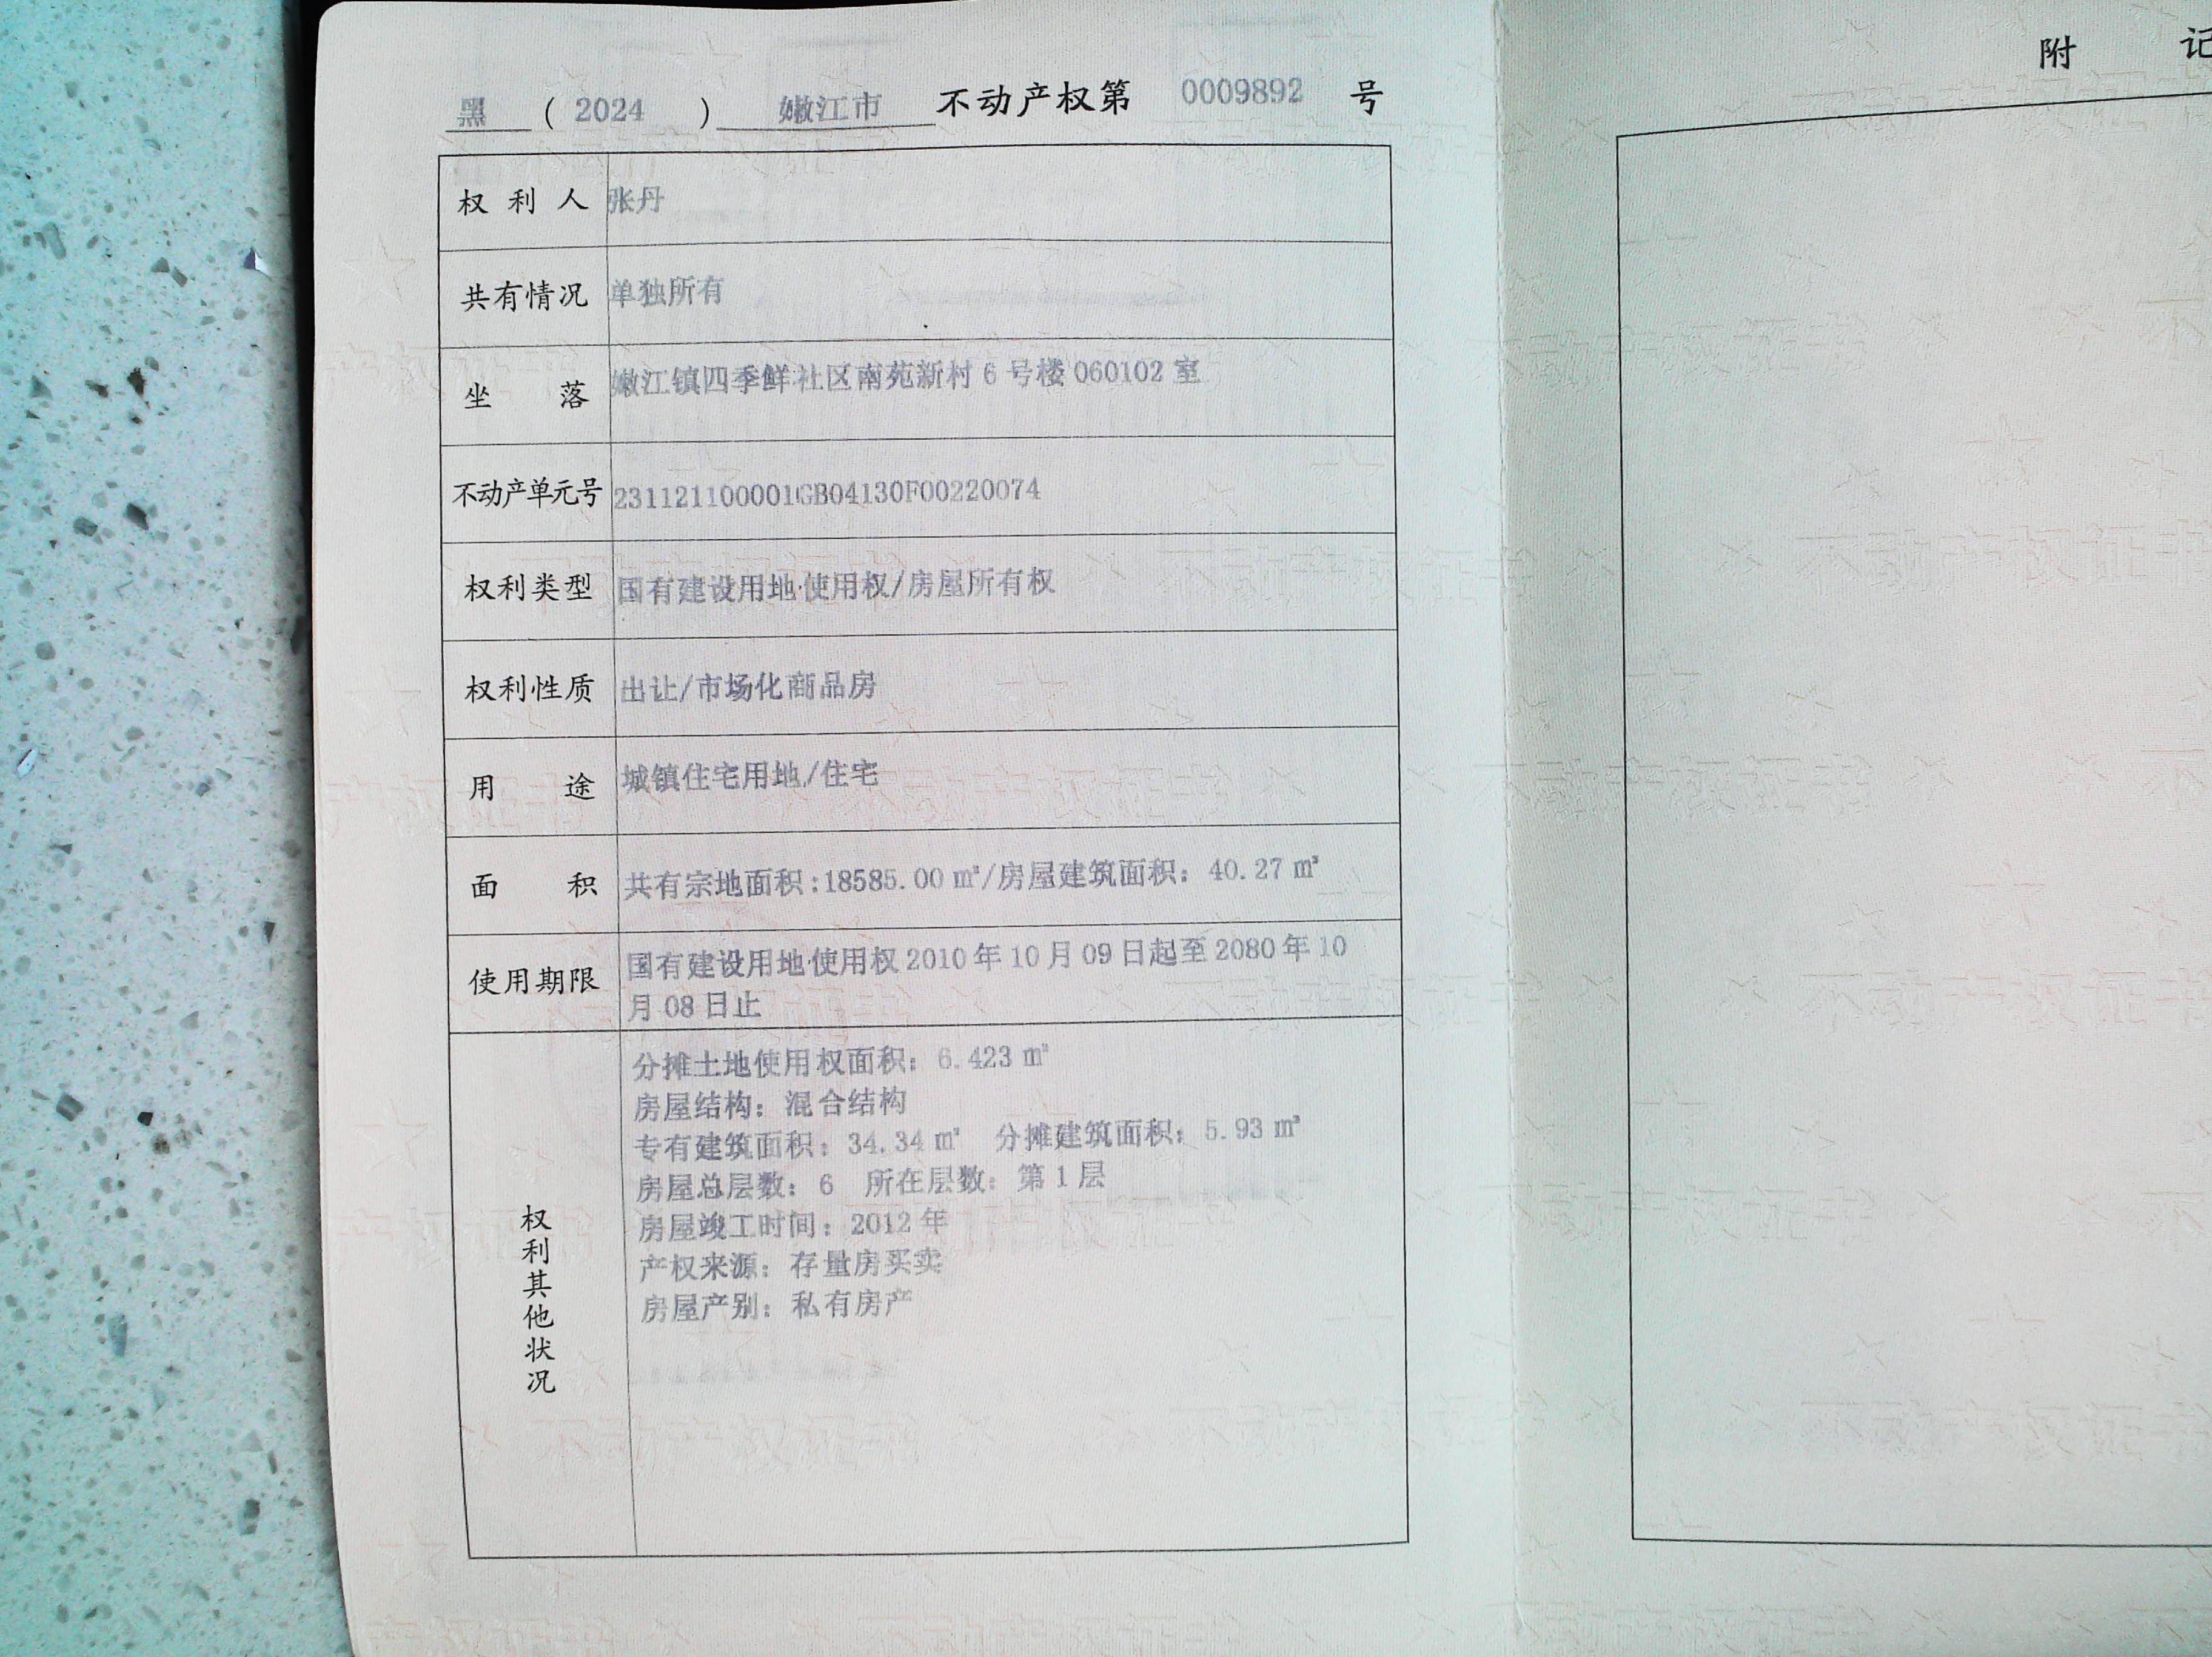 黑 ( 2024 ) 嫩江市 不动产权第 0009892 号
权利人 张丹
共有情况 单独所有
坐落 嫩江镇四季鲜社区南苑新村 6 号楼 060102 室
不动产单元号 231121100001GB04130F00220074
权利类型 国有建设用地使用权/房屋所有权
权利性质 出让/市场化商品房
用途 城镇住宅用地/住宅
面积 共有宗地面积:18585.00 ㎡/房屋建筑面积：40.27 ㎡
使用期限 国有建设用地使用权 2010 年 10 月 09 日起至 2080 年 10
月 08 日止
权利其他状况
分摊土地使用权面积：6.423 ㎡
房屋结构：混合结构
专有建筑面积：34.34 ㎡ 分摊建筑面积：5.93 ㎡
房屋总层数：6 所在层数：第 1 层
房屋竣工时间：2012 年
产权来源：存量房买卖
房屋产别：私有房产
附 记